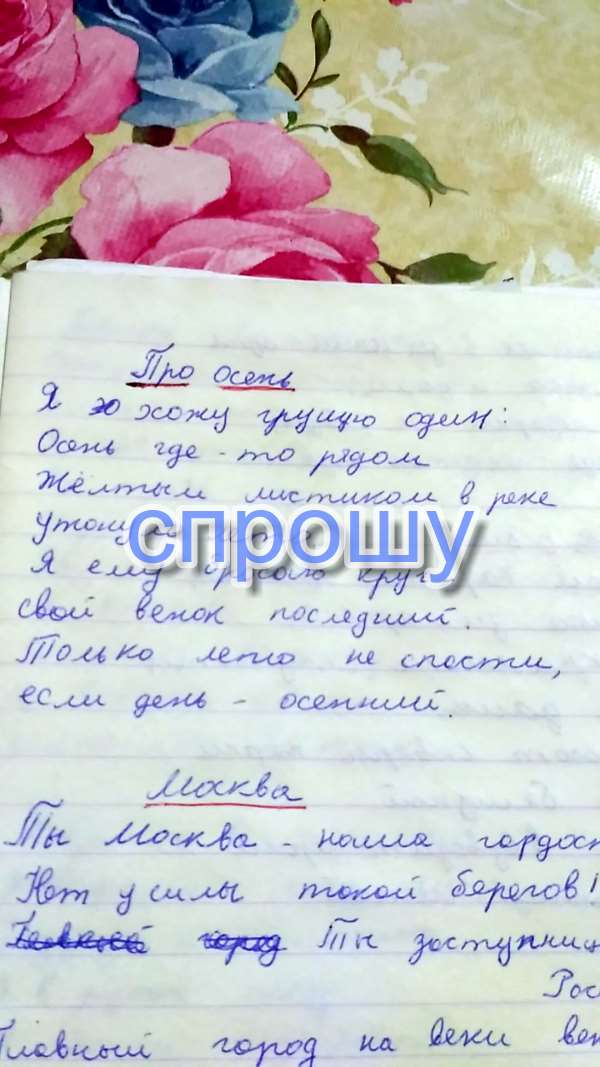 Про осень
Я хожу грущу один:
Осень где-то рядом
Жёлтым листиком в реке
спрошу
Я ему бросаю круг
свой венок последний.
Только лето не спасти,
если день - осенний.
Москва
Ты Москва - наша гордост
Нет у силы такой берегов!
Главный город Ты заступниц
Рос
Главный город на веки век